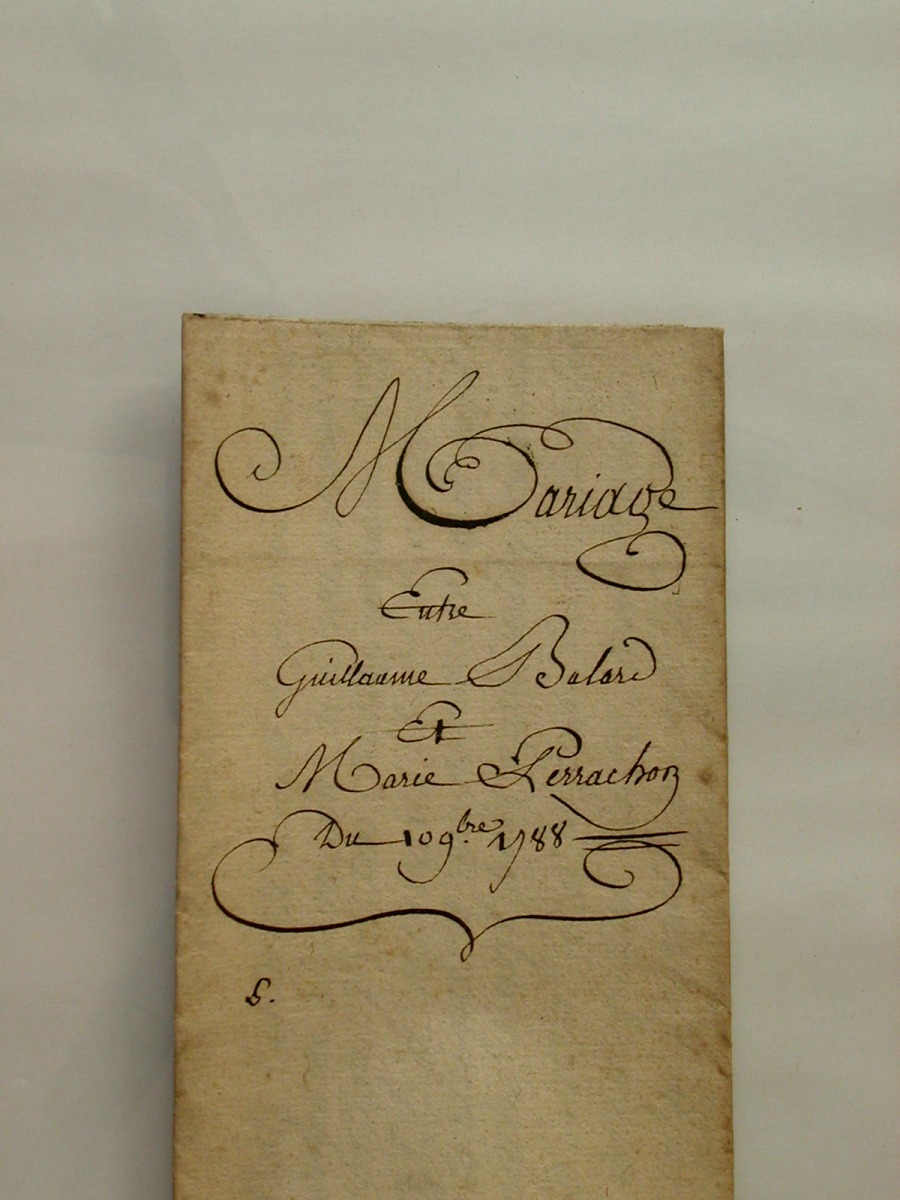 Mariage
Entre
Guillaume Balard
Et
Marie Perrachon
Du 10 9.bre 1788